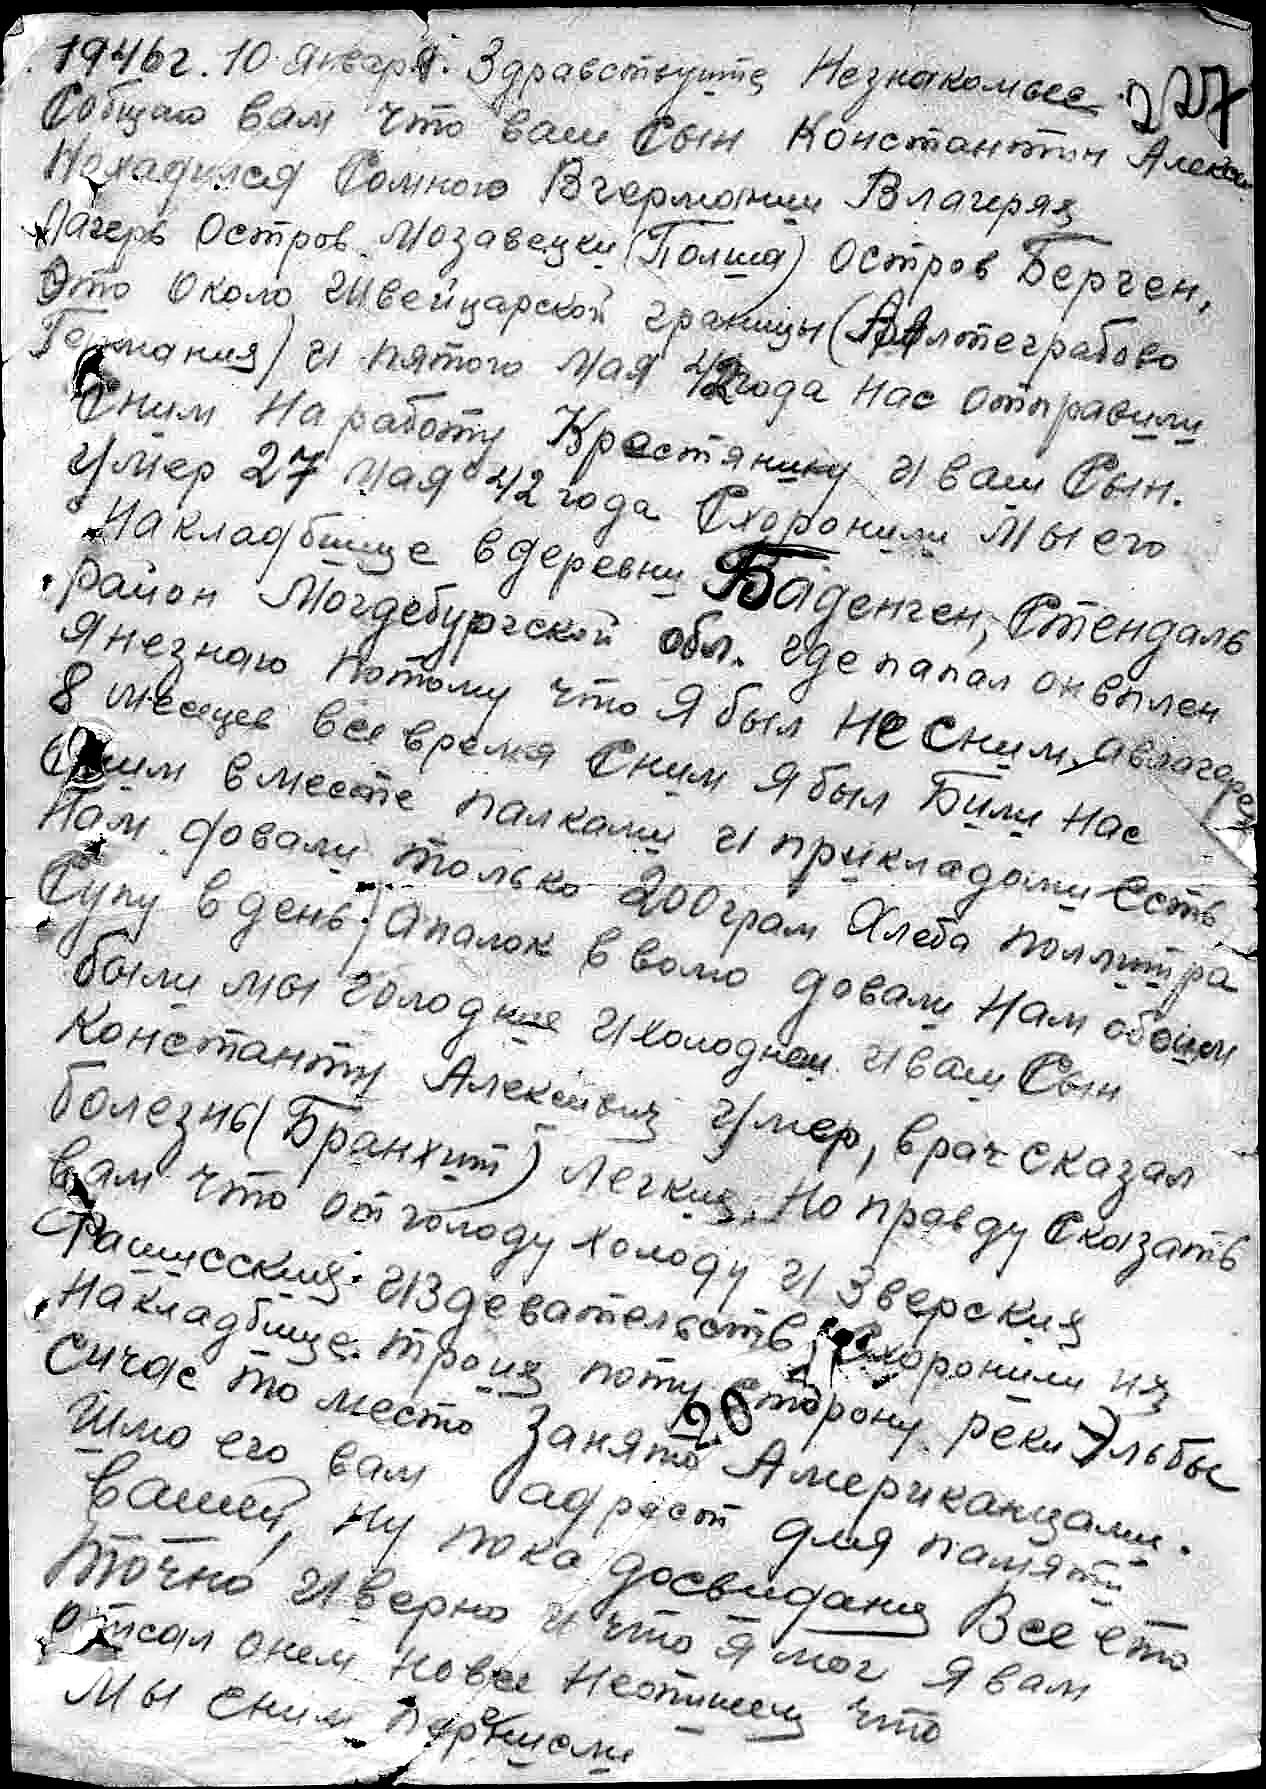 1946г. 10 Января. Здравствуите Незнакомыее 227
Собщаю вам что ваш Сын Константин Алексе
Находился Сомною Вгермонии Влагерях
Лагерь Остров Мозавецки (Полша) Остров Берген,
Это Около Швейцарской границы (Алтеграбово
Германия) и пятого Мая 42 года нас отправили
Сним На работу Крестянину и ваш Сын.
Умер 27 Мая 42 года Схоронили Мы его
На кладбище вдеревни Баденген, Стендаль
район Могдебургской обл. где папал онвплен
Янезнаю потому что Я был не сним, авлагерех
8 месецев все время Сним Я был Били Нас
Сним вместе палками и прикладами Есть
Нам довали только 200 грам Хлеба поллитра
Супу вдень, Апалок вволю довали Нам обоим
были мы голодные и холоднеи и ваш Сын
Константи Алексеивич Умер, врач сказал
болезнь (Бранхит) Легких. Но правду Сказать
вам что от голоду холоду и Зверских
Фашисских Издевательств Схоронили их
На кладбище троих поту сторону реки Эльбы
Сичас то место Занято Американцами.
20
Шлю его вам адрест для памяти
вашей, ну пока досвидания Все ето
точно и верно и что я мог я вам
описал онем новсе Неопишеш что
Мы сним